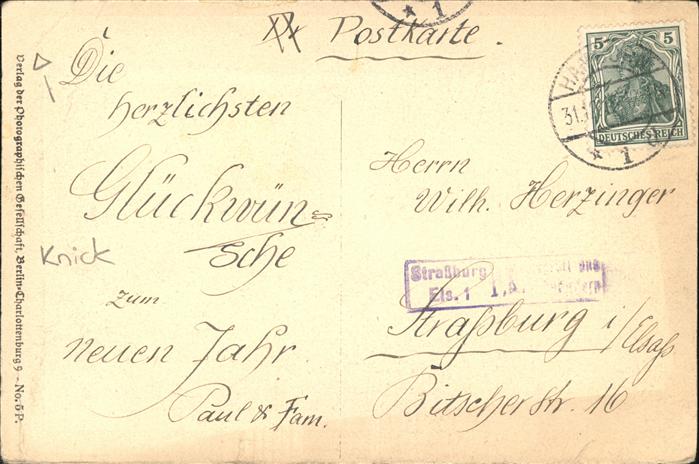 Postkarte.
Die
herzlichsten
Glückwün=
sche
zum
neuen Jahr.
Paul & Fam.
Knick
Verlag der Photographischen Gesellschaft, Berlin-Charlottenburg 9 - No. 5 P.
5 5
DEUTSCHES REICH
31.
* 1
* 1
Herrn
Wilh. Herzinger
Straßburg
Els. 1
Straßburg i/Elsaß
Bitscherstr. 16